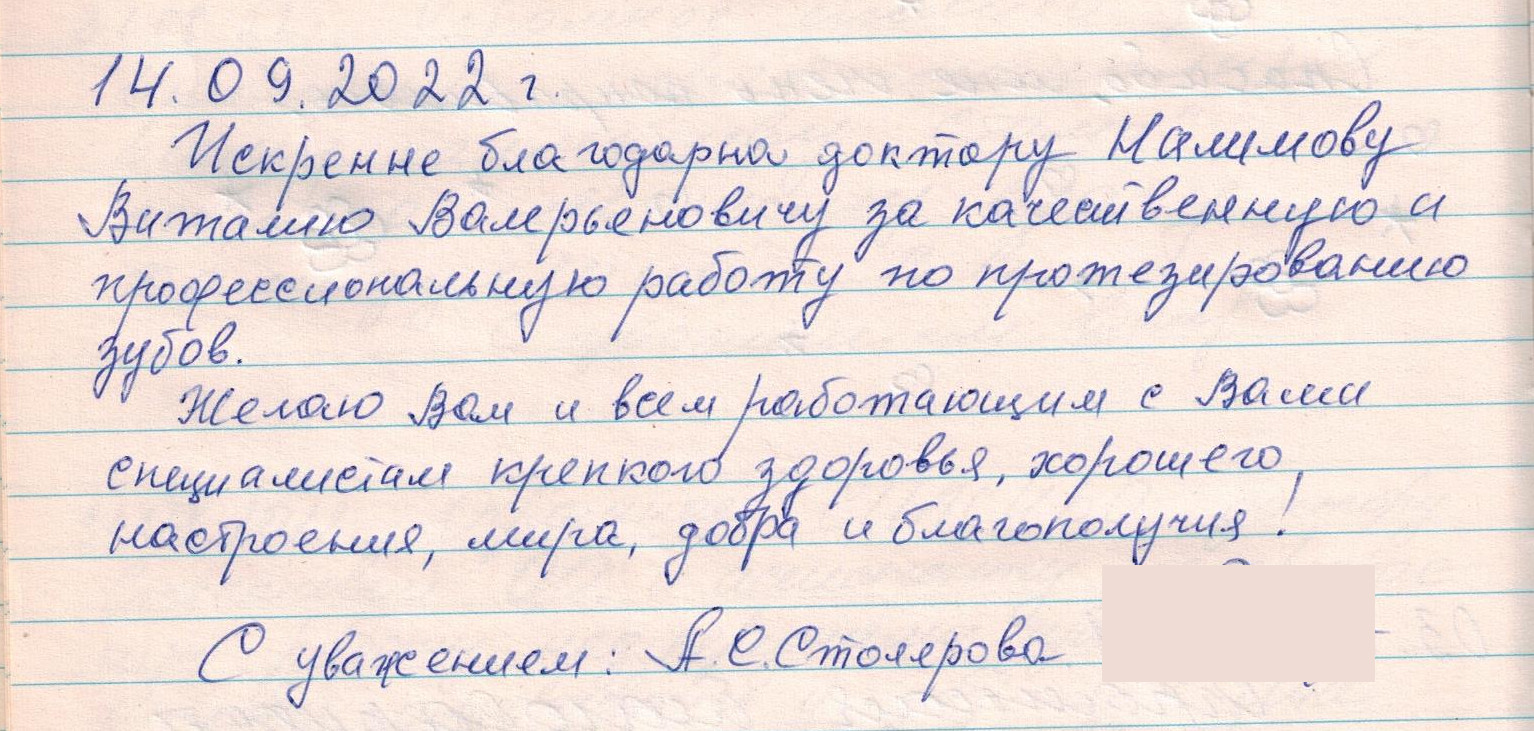 14.09.2022 г.
Искренне благодарна доктору Налимову
Виталию Валерьеновичу за качественную и
профессиональную работу по протезированию
зубов.
Желаю Вам и всем работающим с Вами
специалистам крепкого здоровья, хорошего
настроения, мира, добра и благополучия!
С уважением: А.С.Столярова